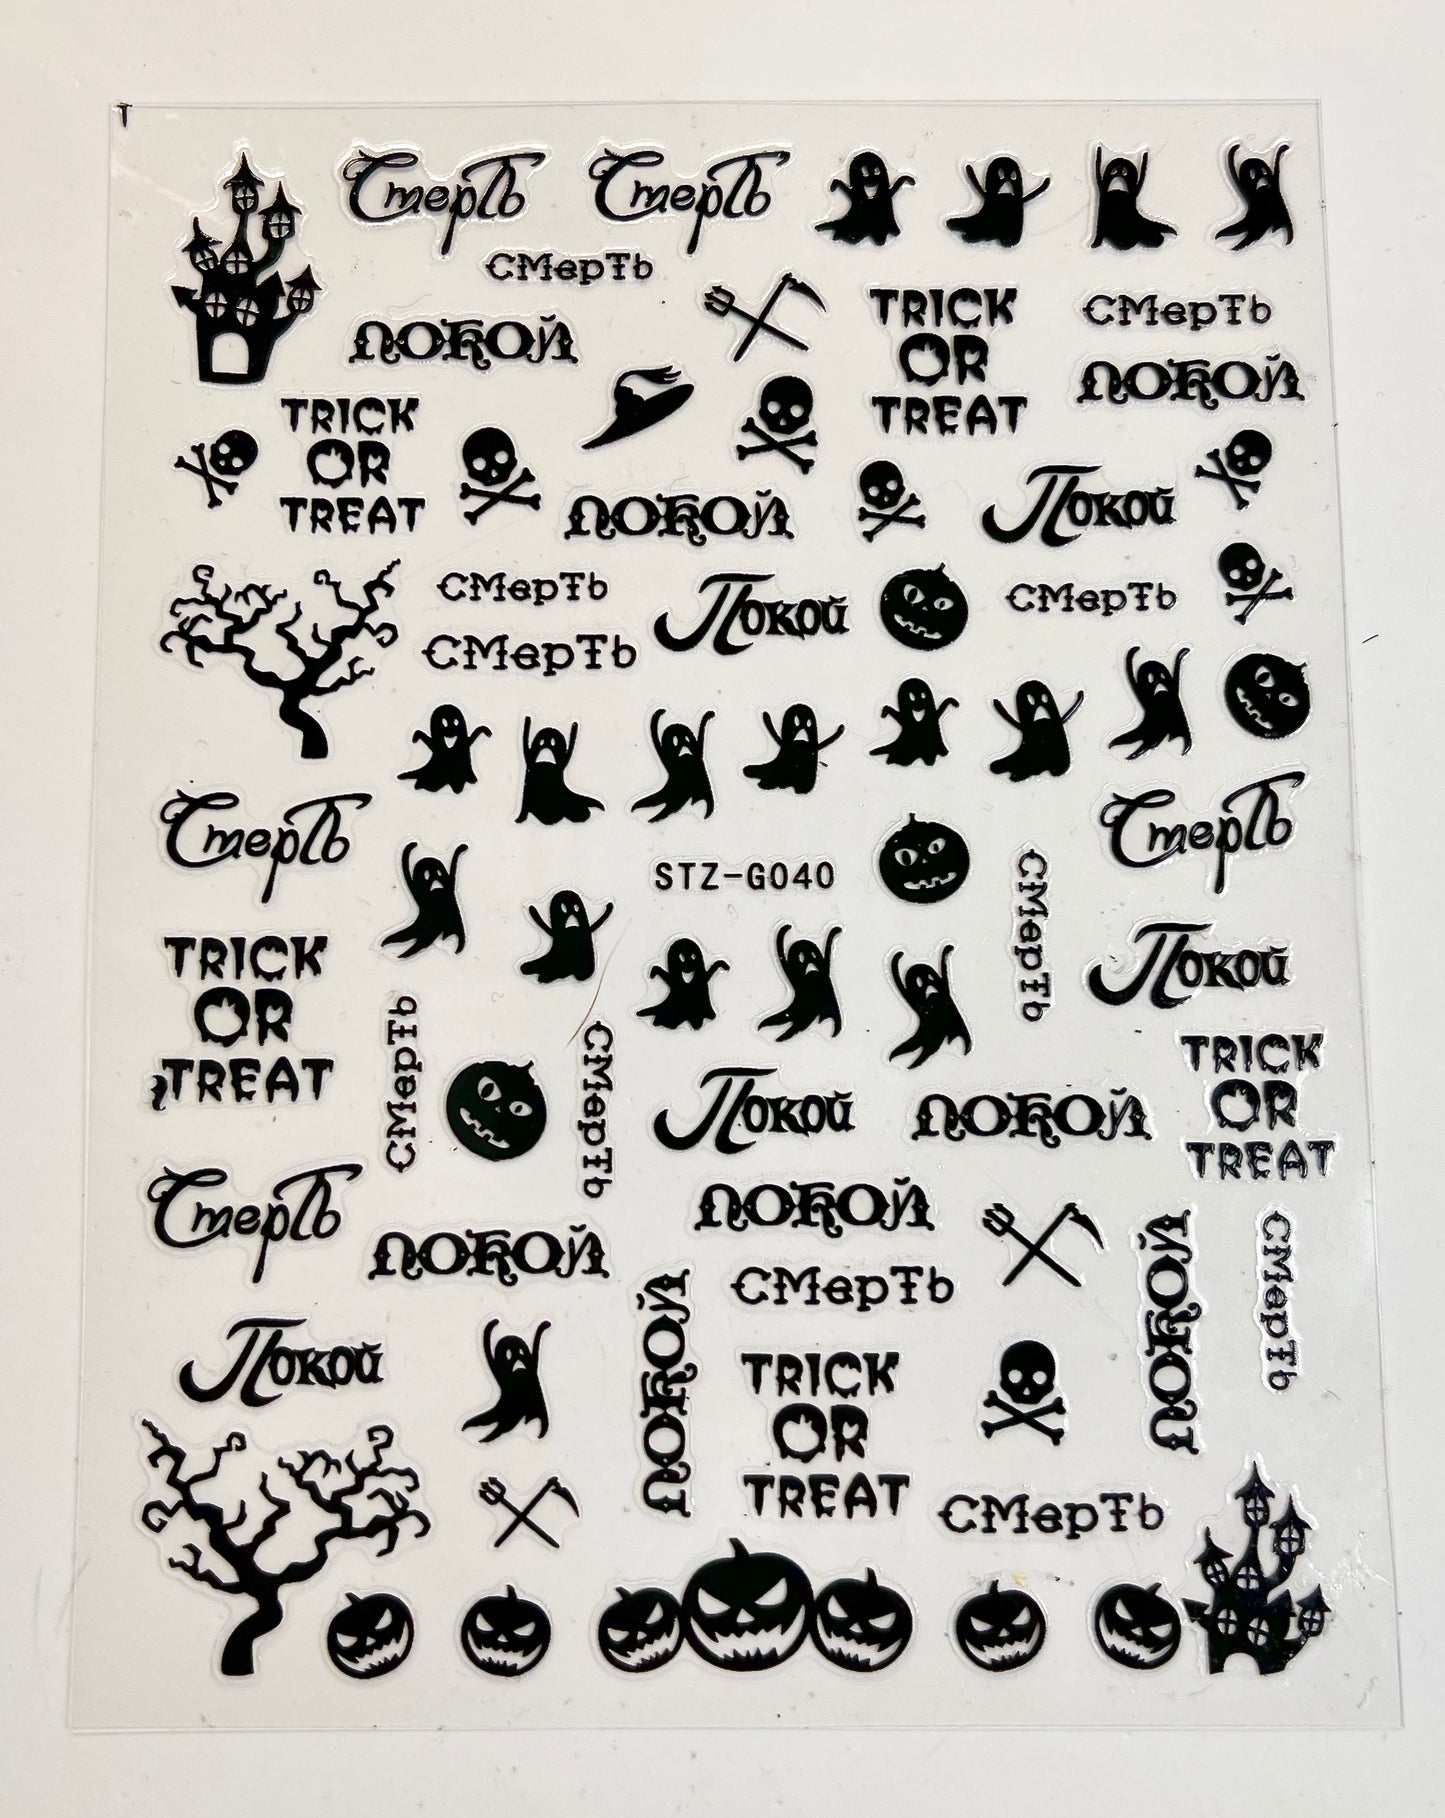 Смерть
Смерть
смерть
покой
TRICK
OR
TREAT
смерть
покой
TRICK
OR
TREAT
покой
Покой
смерть
Покой
смерть
смерть
Смерть
STZ-G040
Смерть
смерть
TRICK
OR
TREAT
Покой
смерть
смерть
Покой
покой
TRICK
OR
TREAT
Смерть
покой
покой
смерть
покой
покой
смерть
Покой
TRICK
OR
TREAT
смерть